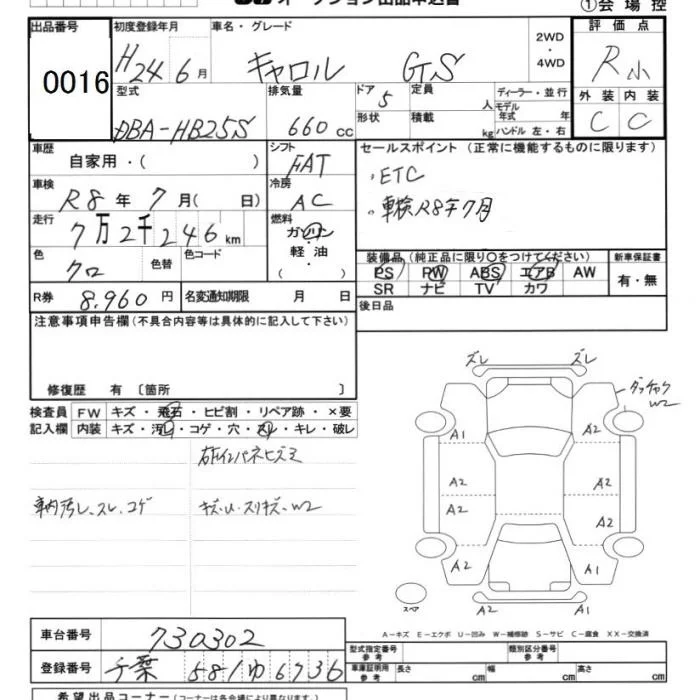 オークション出品申込書
①会場控
出品番号 初度登録年月 車名・グレード 2WD ・ 4WD 評価点
0016 H24年6月 キャロル GS R小
型式 排気量 ドア 定員 ディーラー・並行 外装 内装
DBA-HB25S 660cc 5 人 モデル年式 年 C C
形状 積載 kg ハンドル 左・右
車歴 自家用・( ) シフト FAT セールスポイント (正常に機能するものに限ります)
車検 R8年7月( 日) 冷房 AC ・ETC
走行 7万2千246km 燃料 ガソリン ・車検R8年7月
軽・油 ・( )
色 クロ 色替 色コード 装備品(純正品に限り○をつけてください) 新車保証書
PS PW ABS エアB AW 有・無
R券 8,960円 名変通知期限 月 日 SR ナビ TV カワ
注意事項申告欄(不具合内容等は具体的に記入して下さい) 後日品
修復歴 有 〔箇所 〕
検査員 FW キズ・飛石・ヒビ割・リペア跡・×要
記入欄 内装 キズ・汚レ・コゲ・穴・スレ・キレ・破レ
ズレ ズレ
ダッチャク W2
A1 A2
右インパネヒズミ
A2 A2
車内汚レ、スレ、コゲ キズ・U・スリキズ・W2
A2 A2
A2 A1
スペア A2 A1
A-キズ E-エクボ U-凹み W-補修跡 S-サビ C-腐食 XX-交換済
車台番号 730302
型式指定番号 参考 類別区分番号 参考
登録番号 千葉 581 ゆ 6736
車庫証明用 参考 長さ cm 幅 cm 高さ cm
希望出品コーナー(コーナーは各会場により異なります。)